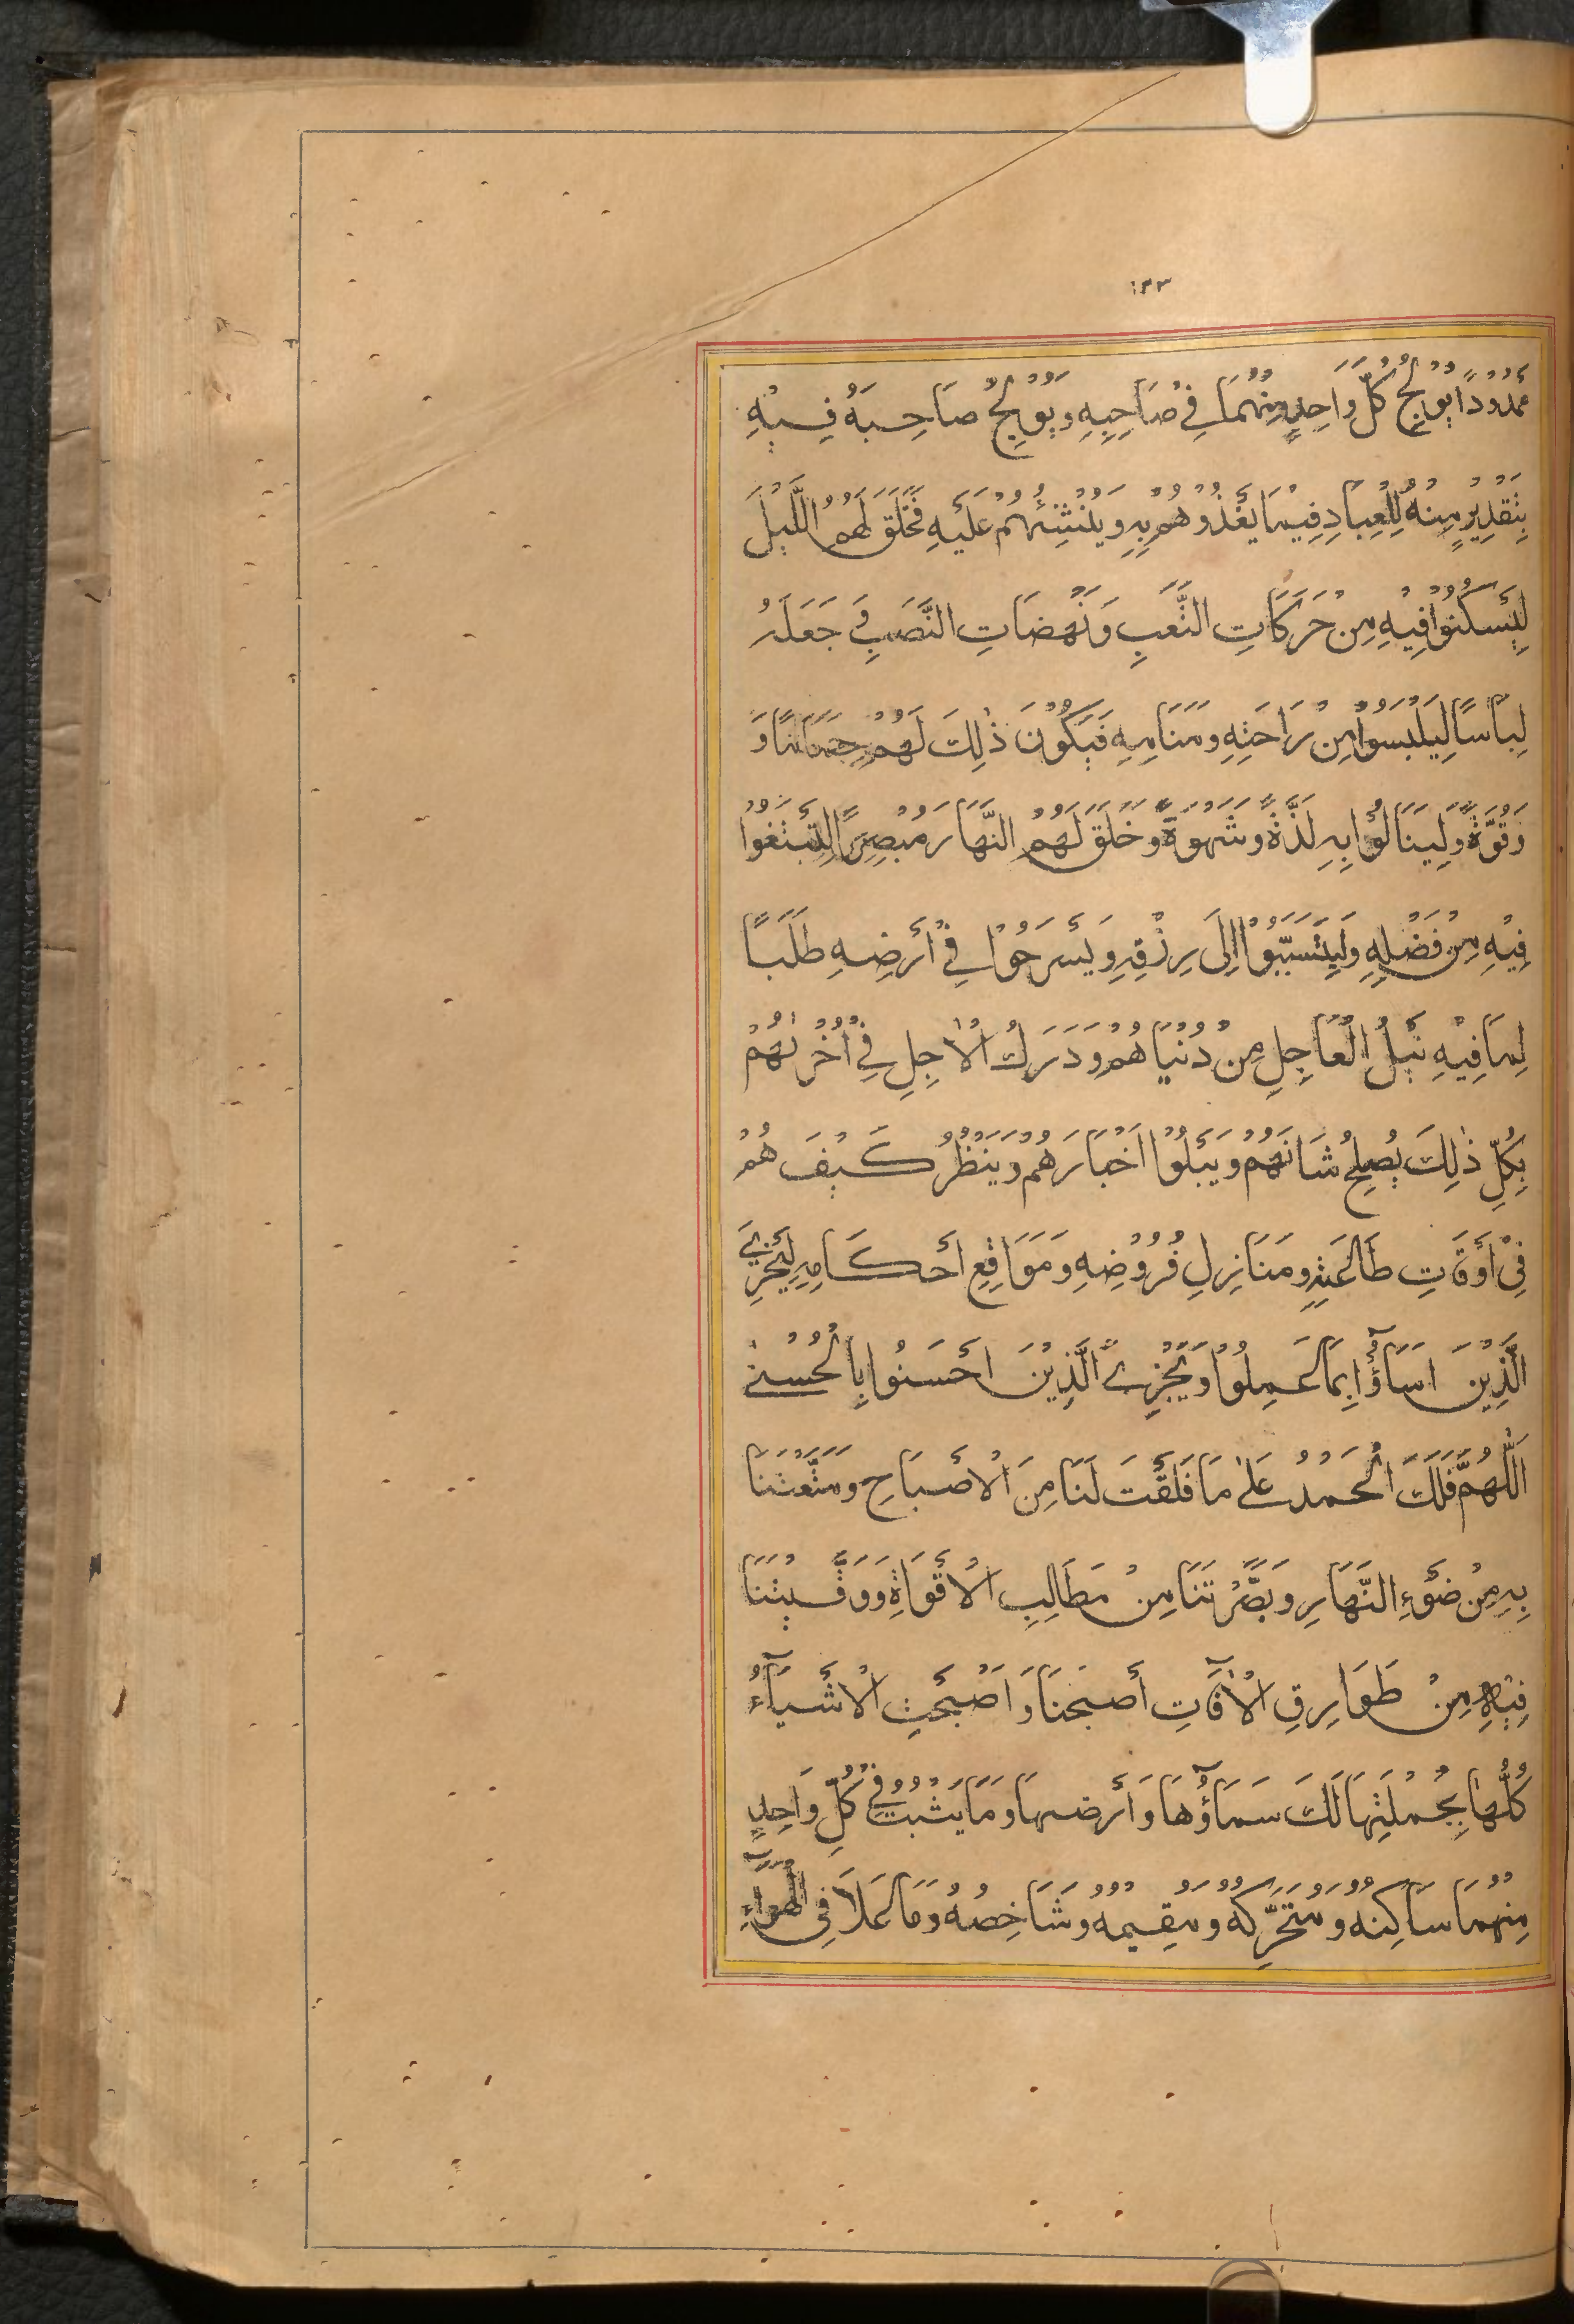 ١٣٣
مَمْدُوْدًا يُوْلِجُ كُلَّ وَاحِدٍ مِنْهُمَا فِيْ صَاحِبِهِ وَيُوْلِجُ صَاحِبَهُ فِيْهِ
بِتَقْدِيْرٍ مِنْهُ لِلْعِبَادِ فِيْمَا يَغْذُوْهُمْ بِهِ وَيُنْشِئُهُمْ عَلَيْهِ فَخَلَقَ لَهُمُ اللَّيْلَ
لِيَسْكُنُوْا فِيْهِ مِنْ حَرَكَاتِ التَّعَبِ وَنَهَضَاتِ النَّصَبِ وَ جَعَلَهُ
لِبَاسًا لِيَلْبَسُوْا مِنْ رَاحَتِهِ وَمَنَامِهِ فَيَكُوْنَ ذٰلِكَ لَهُمْ جَمَامًا وَ
وَقُوَّةً وَلِيَنَالُوْا بِهِ لَذَّةً وَشَهْوَةً وَخَلَقَ لَهُمُ النَّهَارَ مُبْصِرًا لِيَبْتَغُوْا
فِيْهِ مِنْ فَضْلِهِ وَلِيَتَسَبَّبُوْا اِلَى رِزْقِهِ وَيَسْرَحُوْا فِيْ أَرْضِهِ طَلَبًا
لِمَا فِيْهِ نَيْلُ الْعَاجِلِ مِنْ دُنْيَاهُمْ وَدَرَكُ الْاٰجِلِ فِيْ اُخْرٰىهُمْ
بِكُلِّ ذٰلِكَ يُصْلِحُ شَانَهُمْ وَيَبْلُوْا اَخْبَارَهُمْ وَيَنْظُرُ كَيْفَ هُمْ
فِيْ أَوْقَاتِ طَاعَتِهِ وَمَنَازِلِ فُرُوْضِهِ وَمَوَاقِعِ أَحْكَامِهِ لِيَجْزِيَ
الَّذِيْنَ اَسَآؤُا بِمَا عَمِلُوْا وَيَجْزِيَ الَّذِيْنَ اَحْسَنُوْا بِالْحُسْنٰى
اَللّٰهُمَّ فَلَكَ الْحَمْدُ عَلٰى مَا فَلَقْتَ لَنَا مِنَ الْاِصْبَاحِ وَمَتَّعْتَنَا
بِهِ مِنْ ضَوْءِ النَّهَارِ وَبَصَّرْتَنَا مِنْ مَطَالِبِ الْاَقْوَاتِ وَوَقَيْتَنَا
فِيْهِ مِنْ طَوَارِقِ الْاٰفَاتِ أَصْبَحْنَا وَاَصْبَحَتِ الْاَشْيَآءُ
كُلُّهَا بِجُمْلَتِهَا لَكَ سَمَآؤُهَا وَأَرْضُهَا وَمَا بَثَثْتَ فِيْ كُلِّ وَاحِدٍ
مِنْهُمَا سَاكِنُهُ وَمُتَحَرِّكُهُ وَمُقِيْمُهُ وَشَاخِصُهُ وَمَا عَلَا فِى الْهَوَآءِ